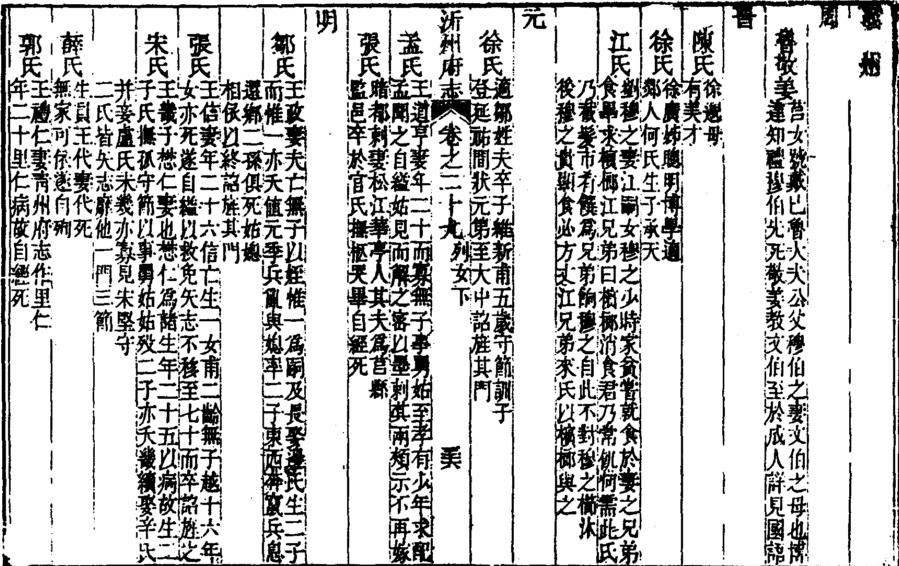 莒州
周
魯敬姜
莒女號戴巳魯人大公父穆伯之妻文伯之母也博
達知禮穆伯先死敬姜教文伯至於成人詳見國語
晋
陳氏
徐邈母
有美才
徐氏
徐廣姊聰明博學適
鄭人何氏生子承天
江氏
劉穆之妻江嗣女穆之少時家貧嘗就食於妻之兄弟
食畢求檳榔江兄弟曰檳榔消食君乃常飢何需此氏
乃截髮市肴饌為兄弟餉穆之自此不對穆之櫛沐
後穆之貴與食必方丈江兄弟來氏以檳榔與之
元
徐氏
適鄒姓夫卒子維新甫五歲守節訓子
登延祐間狀元第至大中詔旌其門
沂州府志 卷之二十九 列女下
孟氏
王道亨妻年二十而寡無子事舅姑至孝有少年求配
孟聞之自縊姑見而解之密以墨刺其兩頰示不再嫁
張氏
賭都剌妻松江華亭人其夫為莒縣
監邑卒於官氏撫柩哭畢自經死
明
鄒氏
王政妻夫亡無子以姪惟一為嗣及長娶邊氏生二子
而惟一亦夭值元季兵亂與媳率二子東西奔竄兵息
還鄉二孫俱死姑媳
相依以終詔旌其門
張氏
王信妻年二十六信亡生一女甫二齡無子越十六年
女亦死遂自縊以救免矢志不移至七十而卒詔旌之
宋氏
王幾子懋仁妻也懋仁為諸生年二十五以病故生二
子氏撫孤守節以事舅姑姑歿二子亦夭幾續娶辛氏
并妾盧氏未幾亦寡見朱堅守
二氏皆矢志靡他一門三節
薛氏
生員王代妻代死
無家可依遂自殉
郭氏
王禮仁妻青州府志作里仁
年二十里仁病故自經死